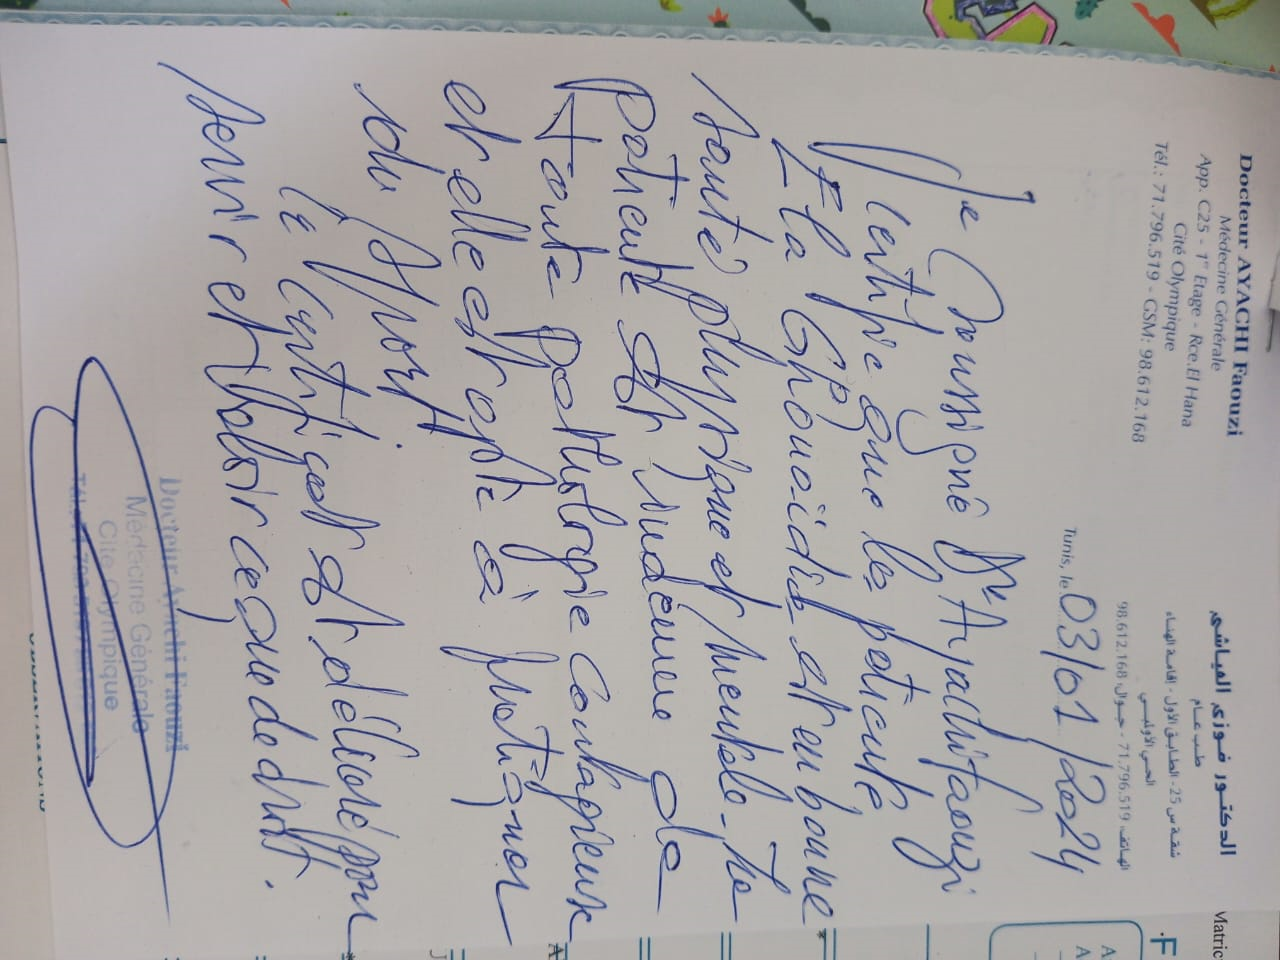 Docteur AYACHI Faouzi
Médecine Générale
App. C25 - 1er Etage - Rce.El Hana
Cité Olympique
Tél.: 71.796.519 - GSM: 98.612.168
الدكتور فوزي العياشي
طب عام
شقة س 25 - الطابق الأول - إقامة الهناء
الحي الأولمبي
الهاتف: 71.796.519 - جوال: 98.612.168
Tunis, le 03/01/2024
Je Soussigné Dr Ayachi Faouzi
Certifie que la patiente
Ela Ghouaidia est en bonne
santé physique et mentale. La
patiente est indemne de
toute pathologie contagieuse
et elle est apte à pratiquer
du sport.
Ce certificat est délivré pour
servir et valoir ce que de droit.
Docteur Ayachi Faouzi
Médecine Générale
Cité Olympique
Matric